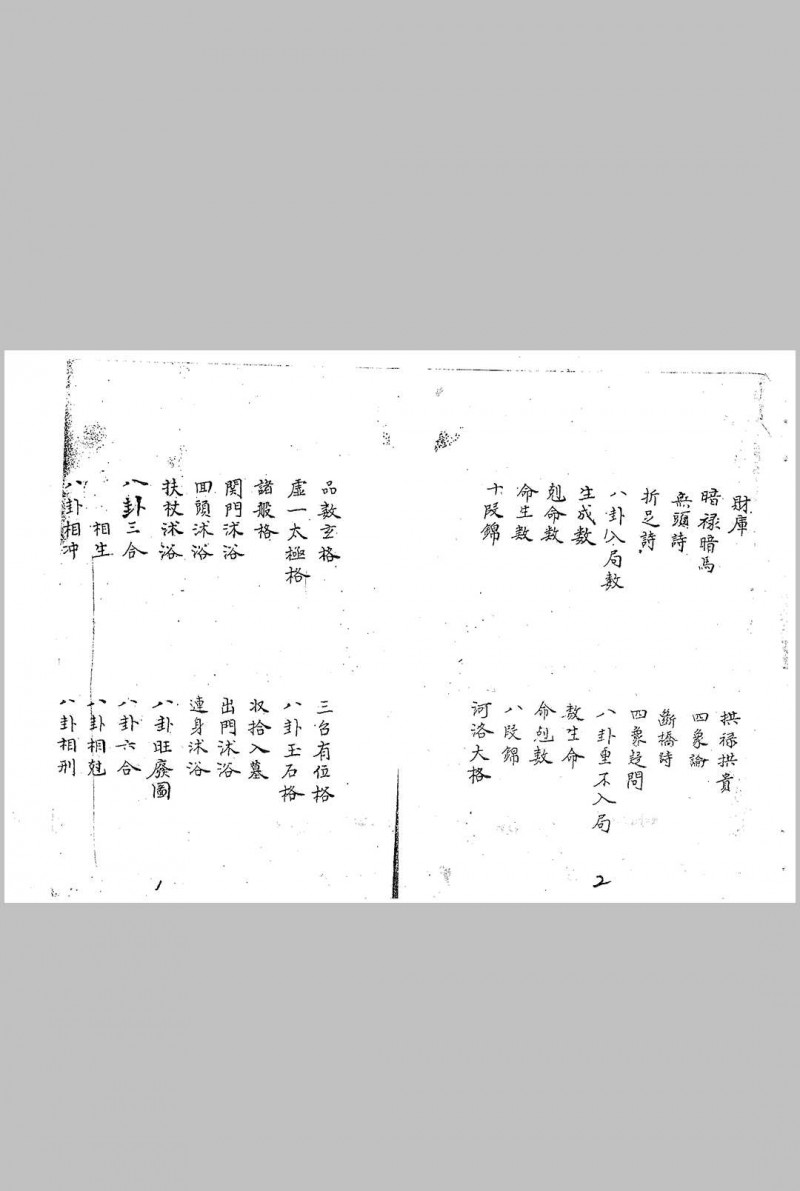 財庫
拱禄拱貴
暗禄暗馬
四象論
無頭詩
斷橋詩
折足詩
四象疑問
八卦入局数
八卦重不入局
生成数
数生命
剋命数
命剋数
命生数
八段錦
十段錦
河洛大格
品数玄格
三台有位格
虛一太極格
八卦玉石格
諸般格
収拾入墓
関門沐浴
出門沐浴
回頭沐浴
連身沐浴
扶杖沐浴
八卦旺廢圖
八卦三合
八卦六合
相生
八卦相尅
八卦相冲
八卦相刑
1
2